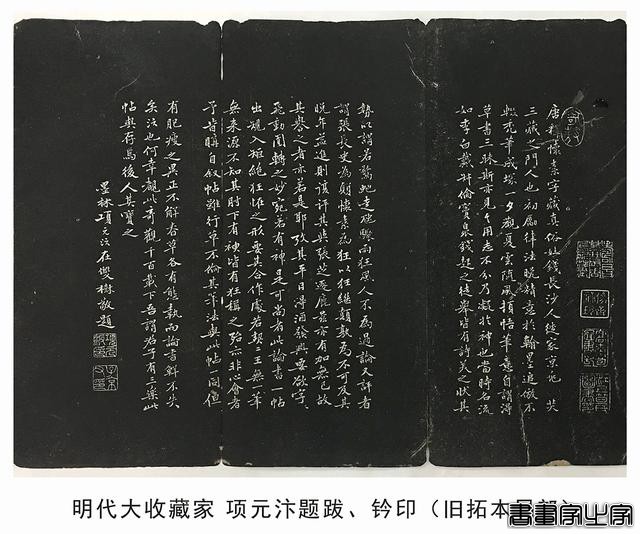 唐釋懷素字藏真俗姓錢長沙人徙家京兆 玄
三藏之門人也初勵律法晚精意於翰墨追倣不
輟禿筆成塚一夕觀夏雲隨風頓悟筆意自謂得
草書三昧斯亦見其用志不分乃凝於神也當時名流
如李白戴叔倫竇臮錢起之徒舉皆有詩美之狀其
勢以謂若驚蛇走虺驟雨狂風人不為過論又評者
謂張長史為顛懷素為狂以狂繼顛孰為不可及其
晚年益進則該評其與張芝逐鹿茲亦有加無已故
其譽之者亦若是耶考其平日得酒發興要欲字字
飛動圓轉之妙宛若有神是可尚者此論書一帖
出規入矩絕狂怪之形要其合作處若契二王無一筆
無來源不知其肘下有神皆有狂之殆亦非心會者
予昔購自敘帖雖行草不倫其筆法與此帖一同但
有肥瘦之異正不解者草各有態執而論書斡不失
矣法也何幸觀以奇觀千百載下吾謂君子有三樂此
帖與存焉後人其寶之
墨林項元汴在櫻樹敬題
明代大收藏家 项元汴题跋、钤印（旧拓本局部）
書畫家之家